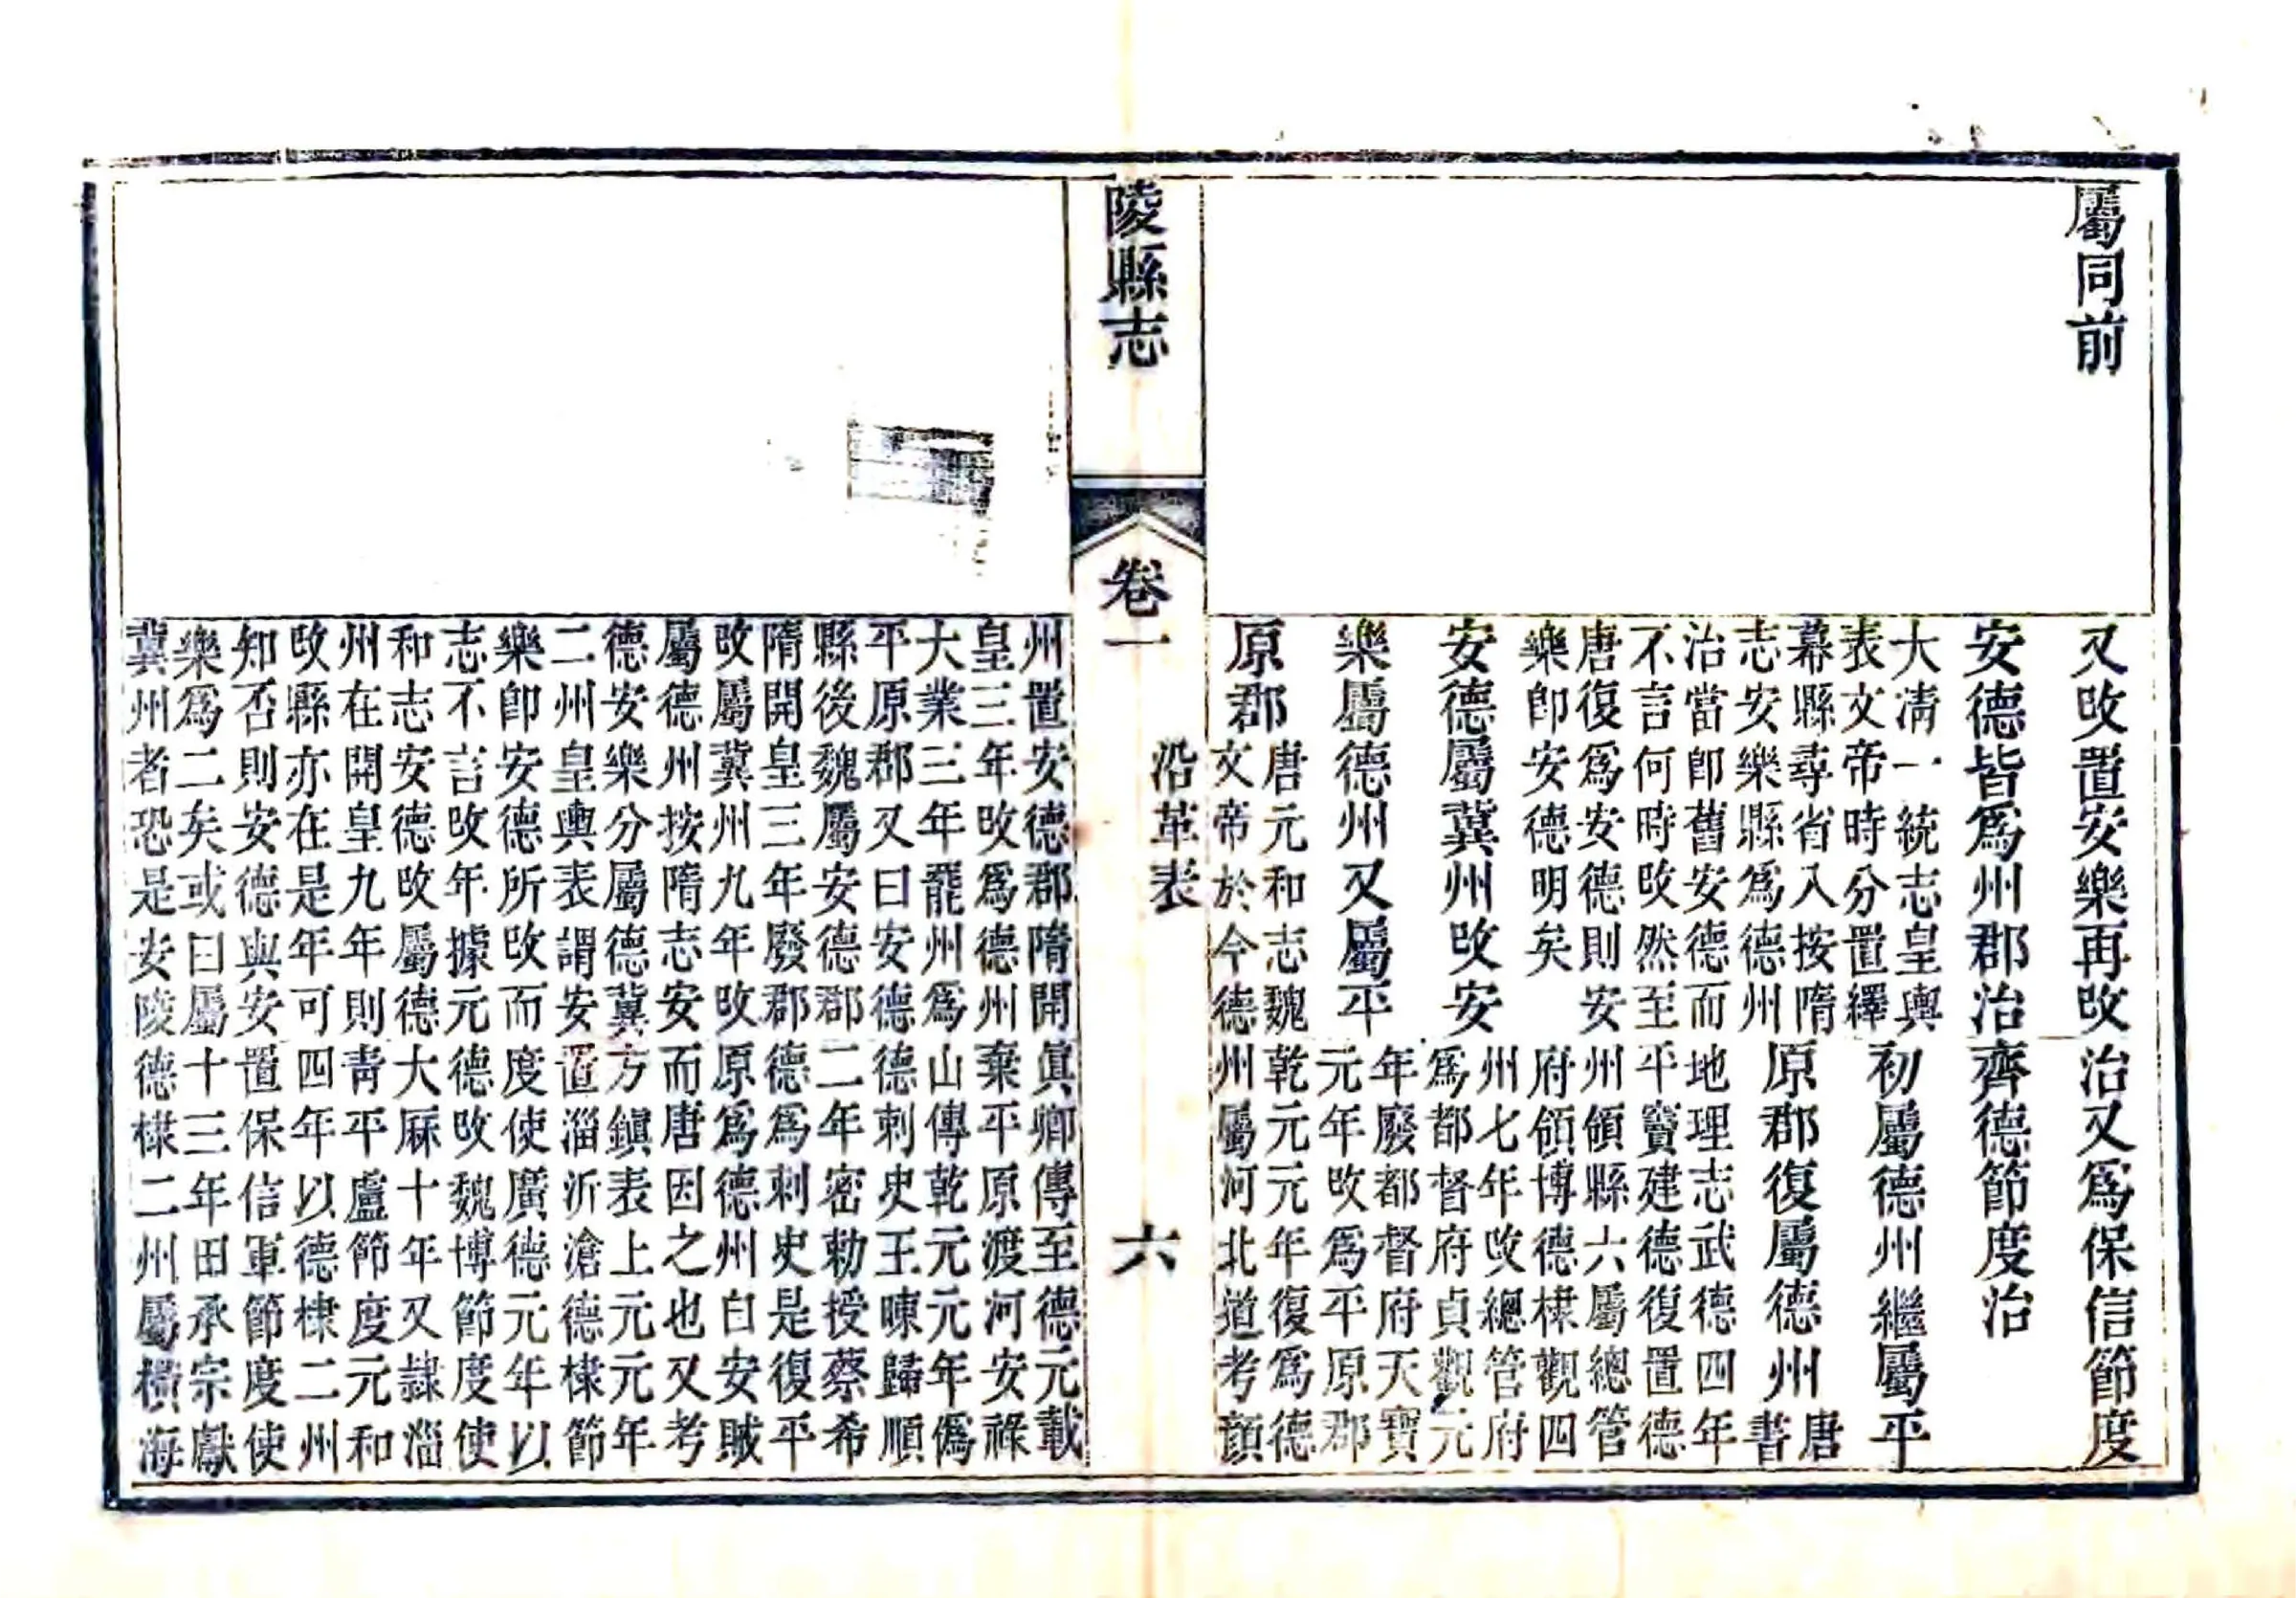 屬同前
又改置安樂再改
安德皆爲州郡治
大淸一統志皇輿
表文帝時分置繹
幕縣尋省入按隋
志安樂縣爲德州
治當卽舊安德而
不言何時改然至
唐復爲安德則安
樂卽安德明矣
安德屬冀州改安
樂屬德州又屬平
原郡
唐元和志魏
文帝於今德
治又爲保信節度
齊德節度治
初屬德州繼屬平
原郡復屬德州
唐
書
地理志武德四年
平竇建德復置德
州領縣六屬總管
府領博德棣觀四
州七年改總管府
爲都督府貞觀元
年廢都督府天寶
元年改爲平原郡
乾元元年復爲德
州屬河北道考顏
陵縣志
卷一
沿革表
六
州置安德郡隋開
皇三年改爲德州
大業三年罷州爲
平原郡又曰安德
縣後魏屬安德郡
隋開皇三年廢郡
改屬冀州九年改
屬德州按隋志安
德安樂分屬德冀
二州皇輿表謂安
樂卽安德所改而
志不言改年據元
和志安德改屬德
州在開皇九年則
改縣亦在是年可
知否則安德與安
樂爲二矣或曰屬
冀州者恐是安陵
眞卿傳至德元載
棄平原渡河安祿
山傳乾元元年僞
德刺史王暕歸順
二年密勅授蔡希
德爲刺史是復平
原爲德州自安賊
而唐因之也又考
方鎭表上元元年
置淄沂滄德棣節
度使廣德元年以
德改魏博節度使
大厤十年又隷淄
靑平盧節度元和
四年以德棣二州
置保信軍節度使
十三年田承宗獻
德棣二州屬橫海